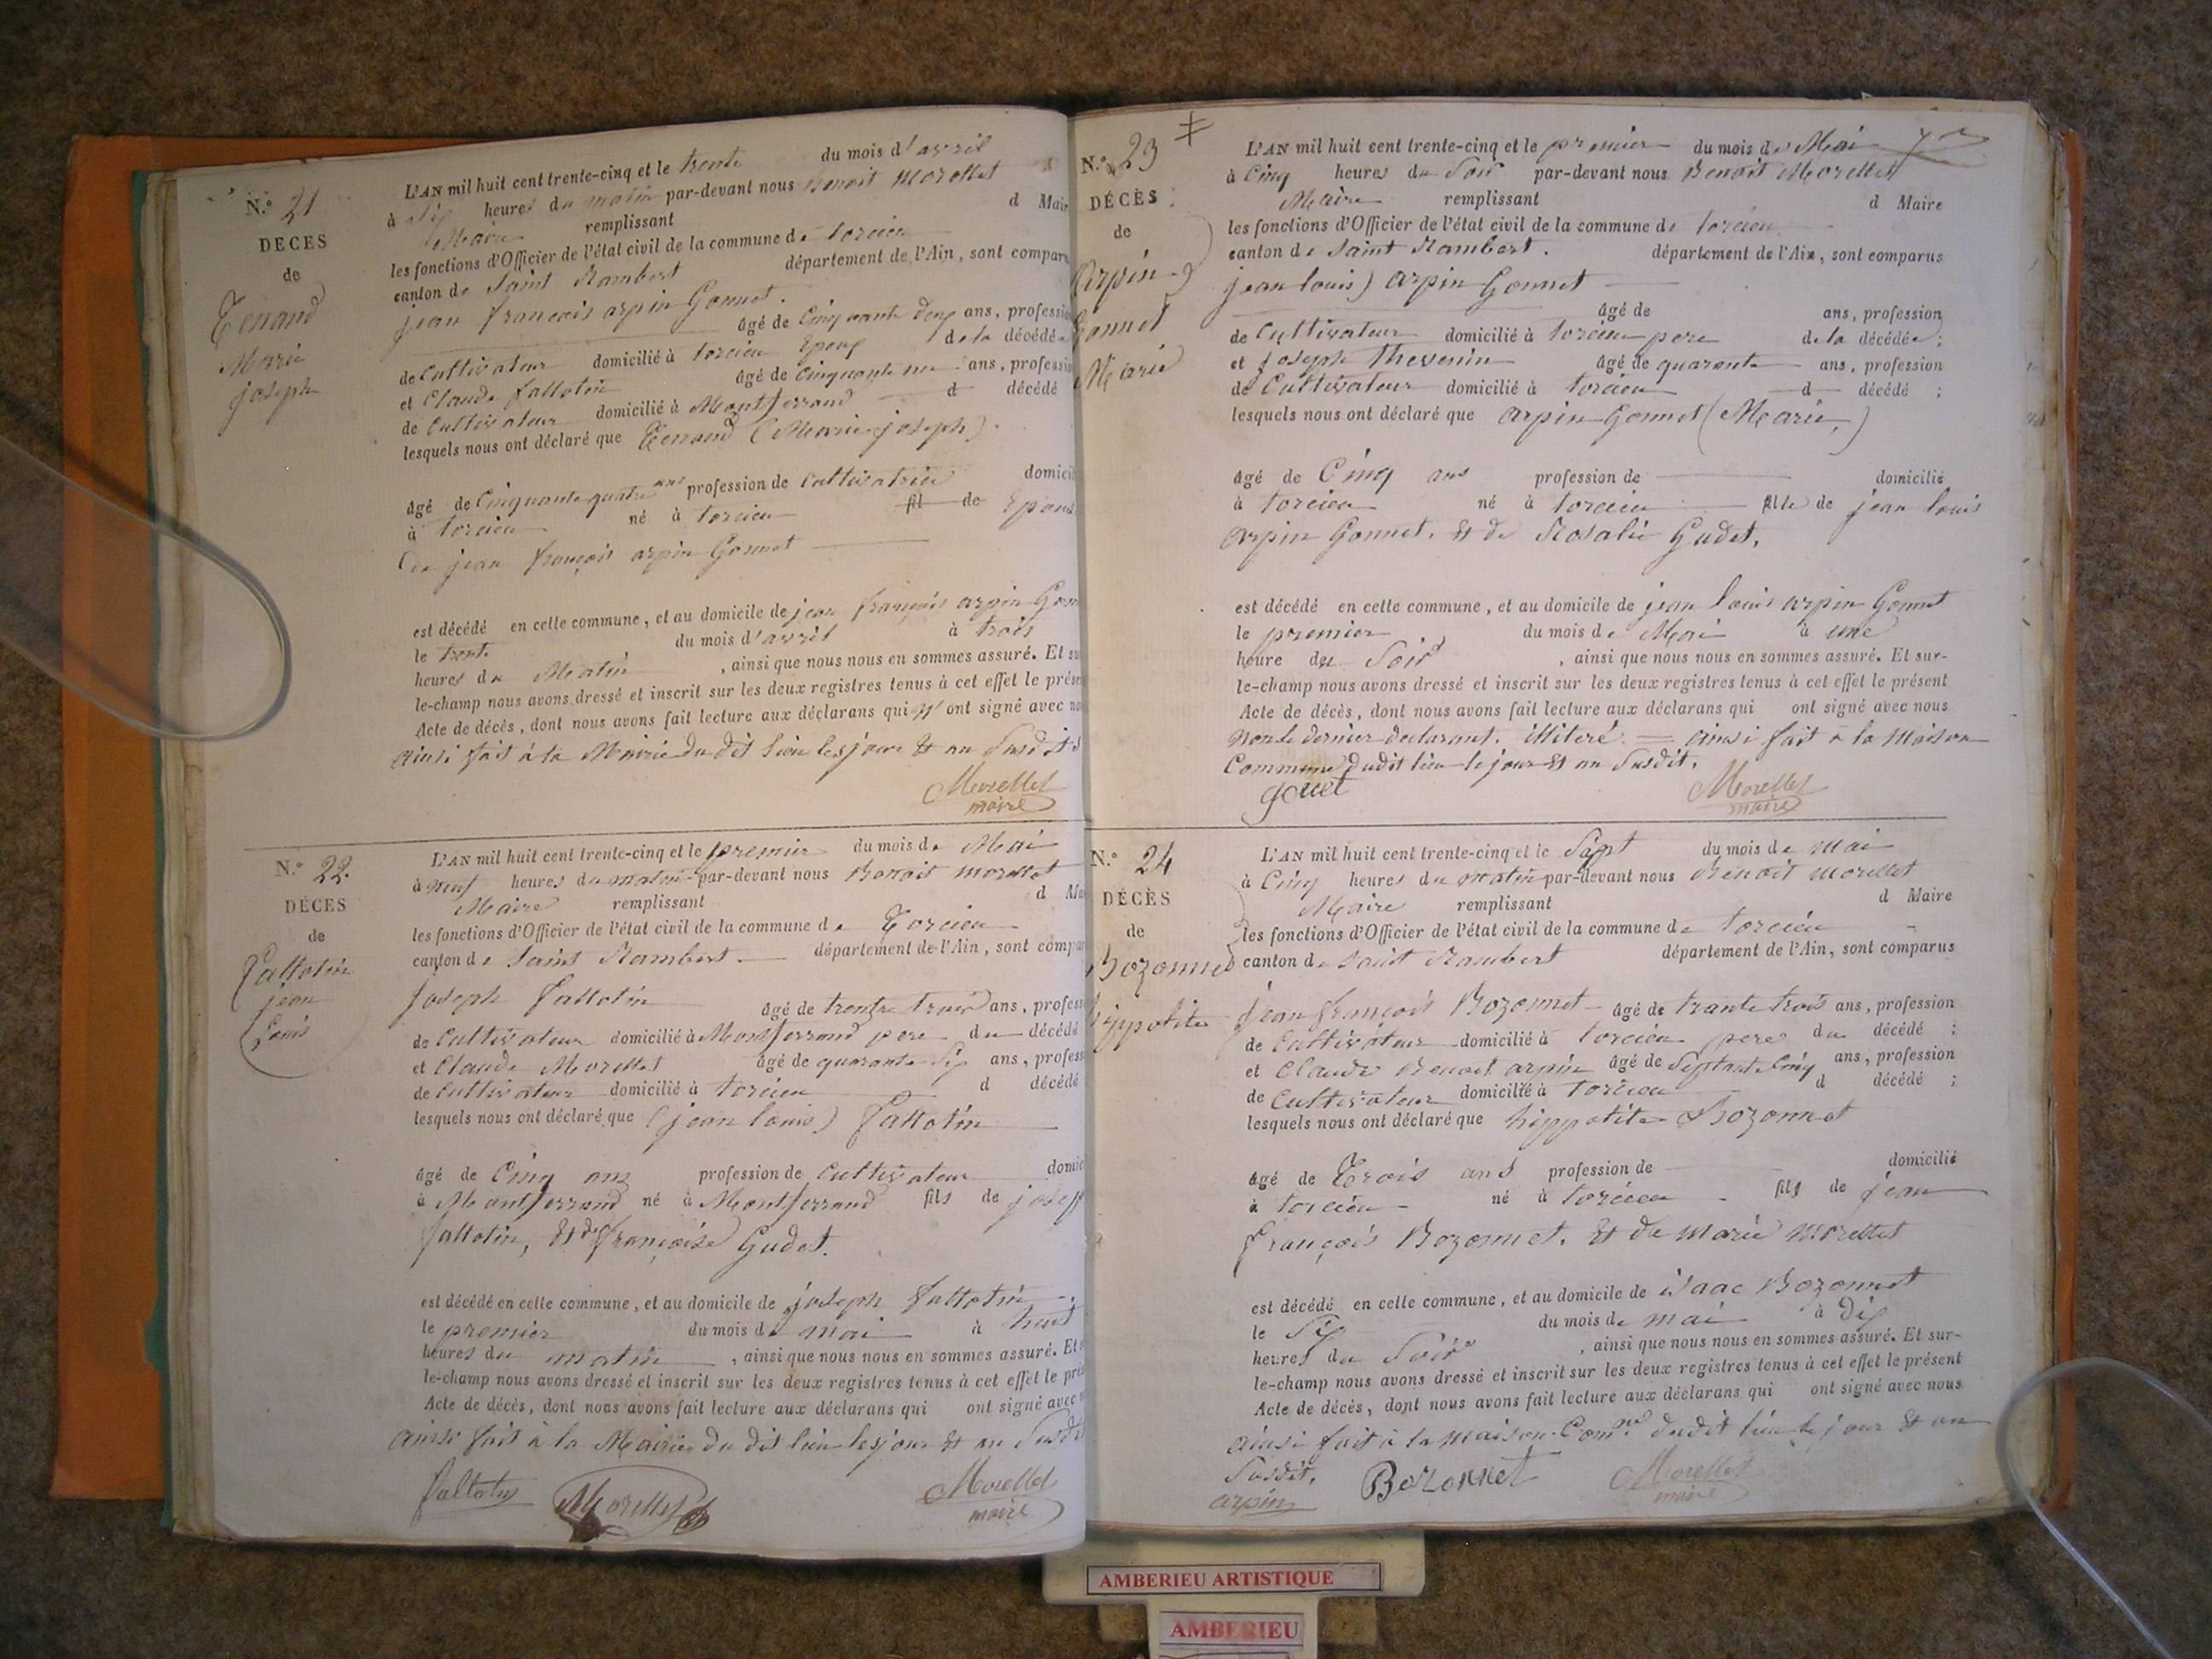 N.° 21
DECES
de
Tenand
Marie
joseph
L'AN mil huit cent trente-cinq et le trente du mois d'avril
à Six heures du matin par-devant nous Benoit Morellet
Maire remplissant d Mair
les fonctions d'Officier de l'état civil de la commune de torcieu
canton de Saint Rambert département de l'Ain, sont compar
jean francois arpin Gonnet.
âgé de Cinquante deux ans, professi
de Cultivateur domicilié à torcieu Epoux de la décédée
et Claude fallotin âgé de Cinquante un ans, professi
de Cultivateur domicilié à Montferrand d décédé
lesquels nous ont déclaré que Tenand (Marie joseph).
âgé de Cinquante quatre ans profession de Cultivatrice domici
à torcieu né à torcieu fil de Epous
de jean françois arpin Gonnet
est décédé en celle commune, et au domicile de jean françois arpin Gonn
le trente du mois d'avril à trois
heures du Matin , ainsi que nous nous en sommes assuré. Et su
le-champ nous avons dressé et inscrit sur les deux registres tenus à cet effet le prése
Acte de décès, dont nous avons fait lecture aux déclarans qui n'ont signé avec no
ainsi fait à la Mairie du dit lieu les jour & an Susdits
Morellet
maire
N.° 22.
DÉCES
de
fallotin
jean
Louis
L'AN mil huit cent trente-cinq et le premier du mois de Mai
à neuf heures du matin par-devant nous Benoit morellet
Maire remplissant d Mai
les fonctions d'Officier de l'état civil de la commune de Torcieu
canton de Saint Rambert. département de l'Ain, sont compar
Joseph fallotin âgé de trentre trois ans, profess
de Cultivateur domicilié à Montferrand pere du décédé
et Claude Morellet âgé de quarante Six ans, profess
de Cultivateur domicilié à torcieu d décédé
lesquels nous ont déclaré que (jean louis) fallotin
âgé de Cinq ans profession de Cultivateur domic
à Montferrand né à Montferrand fils de joseff
fallotin, & de françoise Gudet.
est décédé en celle commune, et au domicile de joseph fallotin
le premier du mois de mai à huit
heures du matin , ainsi que nous nous en sommes assuré. Et s
le-champ nous avons dressé et inscrit sur les deux registres tenus à cet effet le pré
Acte de décès, dont nous avons fait lecture aux déclarans qui ont signé avec n
ainsi fait à la Mairie du dit lieu les jour & an Susdit
fallotin Morellet Morellet
maire
N.° 23
DÉCÈS
de
Arpin
Gonnet
Marie
L'AN mil huit cent trente-cinq et le premier du mois de Mai
à Cinq heures du Soir par-devant nous Benoit Morellet
Maire remplissant d Maire
les fonctions d'Officier de l'état civil de la commune de torcieu
canton de Saint Rambert. département de l'Ain, sont comparus
jean louis) arpin Gonnet
âgé de ans, profession
de Cultivateur domicilié à torcieu pere de la décédée;
et joseph thevenin âgé de quarante ans, profession
de Cultivateur domicilié à torcieu d décédé ;
lesquels nous ont déclaré que arpin Gonnet (Marie,)
âgé de Cinq ans profession de domicilié
à torcieu né à torcieu fille de jean louis
arpin Gonnet, & de Rosalie Gudet.
est décédé en celle commune, et au domicile de jean louis arpin Gonnet
le premier du mois de Mai à une
heure du Soir , ainsi que nous nous en sommes assuré. Et sur-
le-champ nous avons dressé et inscrit sur les deux registres tenus à cet effet le présent
Acte de décès, dont nous avons fait lecture aux déclarans qui ont signé avec nous
non le dernier declarant. illiteré. = ainsi fait à la Maison
Commune dudit lieu le jour & an Susdit.
Morellet
maire
N.° 24
DÉCÈS
de
Bozonnet
hippolite
L'AN mil huit cent trente-cinq et le Sept du mois de mai
à Cinq heures du matin par-devant nous Benoit morellet
Maire remplissant d Maire
les fonctions d'Officier de l'état civil de la commune de torcieu
canton de saint Rambert département de l'Ain, sont comparus
jean françois Bozonnet âgé de trante trois ans, profession
de Cultivateur domicilié à torcieu pere du décédé ;
et Claude Benoit arpin âgé de Septante Cinq ans, profession
de Cultivateur domicilié à torcieu d décédé ;
lesquels nous ont déclaré que hippolite Bozonnet
âgé de Trois ans profession de domicilié
à torcieu né à torcieu fils de jean
françois Bozonnet, & de marie Morellet
est décédé en celle commune, et au domicile de isaac Bozonnet
le Six du mois de mai à dix
heures du Soir , ainsi que nous nous en sommes assuré. Et sur-
le-champ nous avons dressé et inscrit sur les deux registres tenus à cet effet le présent
Acte de décès, dont nous avons fait lecture aux déclarans qui ont signé avec nous
ainsi fait à la maison Com.ne dudit lieu le jour & an
Susdit.
arpin Bozonnet Morellet
maire
AMBERIEU ARTISTIQUE
AMBERIEU